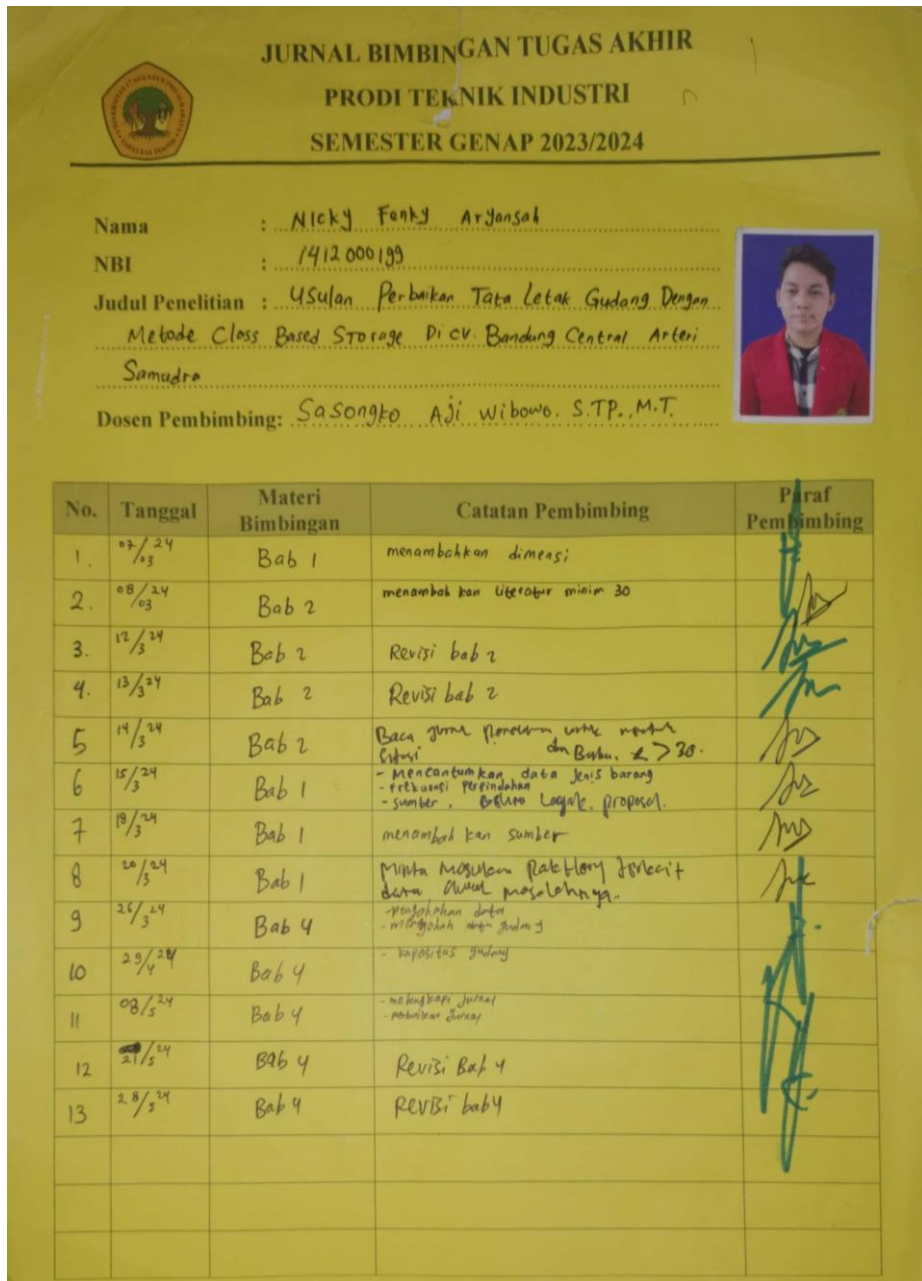 JURNAL BIMBINGAN TUGAS AKHIR
PRODI TEKNIK INDUSTRI
SEMESTER GENAP 2023/2024
Nama : Nicky Fenky Aryansah
NBI : 1412000199
Judul Penelitian : Usulan Perbaikan Tata Letak Gudang Dengan
Metode Class Based Storage Di CV. Bandung Central Arteri
Samudra
Dosen Pembimbing: Sasongko Aji Wibowo. S.TP., M.T.
No. Tanggal Materi Bimbingan Catatan Pembimbing Paraf Pembimbing
1. 07/03 24 Bab 1 menambahkan dimensi
2. 08/03 24 Bab 2 menambah kan literatur minim 30
3. 12/3 24 Bab 2 Revisi bab 2
4. 13/3 24 Bab 2 Revisi bab 2
5 14/3 24 Bab 2 Baca
> 30.
6 15/3 24 Bab 1 - Mencantumkan data jenis barang
- frekuensi perpindahan
- sumber, proposal.
7 18/3 24 Bab 1 menambah kan sumber
8 20/3 24 Bab 1 Minta masukan terkait
data awal masalahnya.
9 26/3 24 Bab 4 - pengolahan data
- mengolah data gudang
10 29/4 24 Bab 4 - kapasitas gudang
11 08/5 24 Bab 4 - melengkapi jurnal
- perbaikan jurnal
12 21/5 24 Bab 4 Revisi Bab 4
13 28/5 24 Bab 4 Revisi bab 4